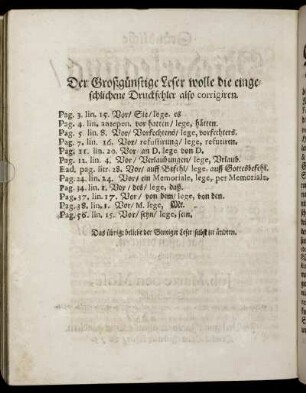 Der Großgünstige Leser wolle die einge-
schlichene Druckfehler also corrigiren.
Pag. 3. lin. 15. Vor/ Sie/ lege. es
Pag. 4. lin. antepen. vor hatten/ lege, hätten.
Pag. 5. lin. 8. Vor/ Vorfechtens/ lege, vorfechters.
Pag. 7. lin. 16. Vor/ refutirung/ lege, refutiren.
Pag. 11. lin. 20. Vor/ an D. lege von D.
Pag. 12. lin. 4. Vor/ Verlaubungen/ lege, Urlaub.
Ead. pag. litt. 18. Vor/ auff Befehl/ lege. auff Gottesbefehl.
Pag. 24. lin. 24. Vors ein Memoriale, lege, per Memoriale.
Pag. 34. lin. 1. Vor/ des/ lege, daß.
Pag. 37. lin. 17. Vor/ von dem/ lege, von den.
Pag. 38. lin. 1. Vor/ M. lege,
Pag. 56. lin. 15. Vor/ seyn/ lege, sein.
Das übrige beliebe der Geneigte Leser selbst zu ändern.